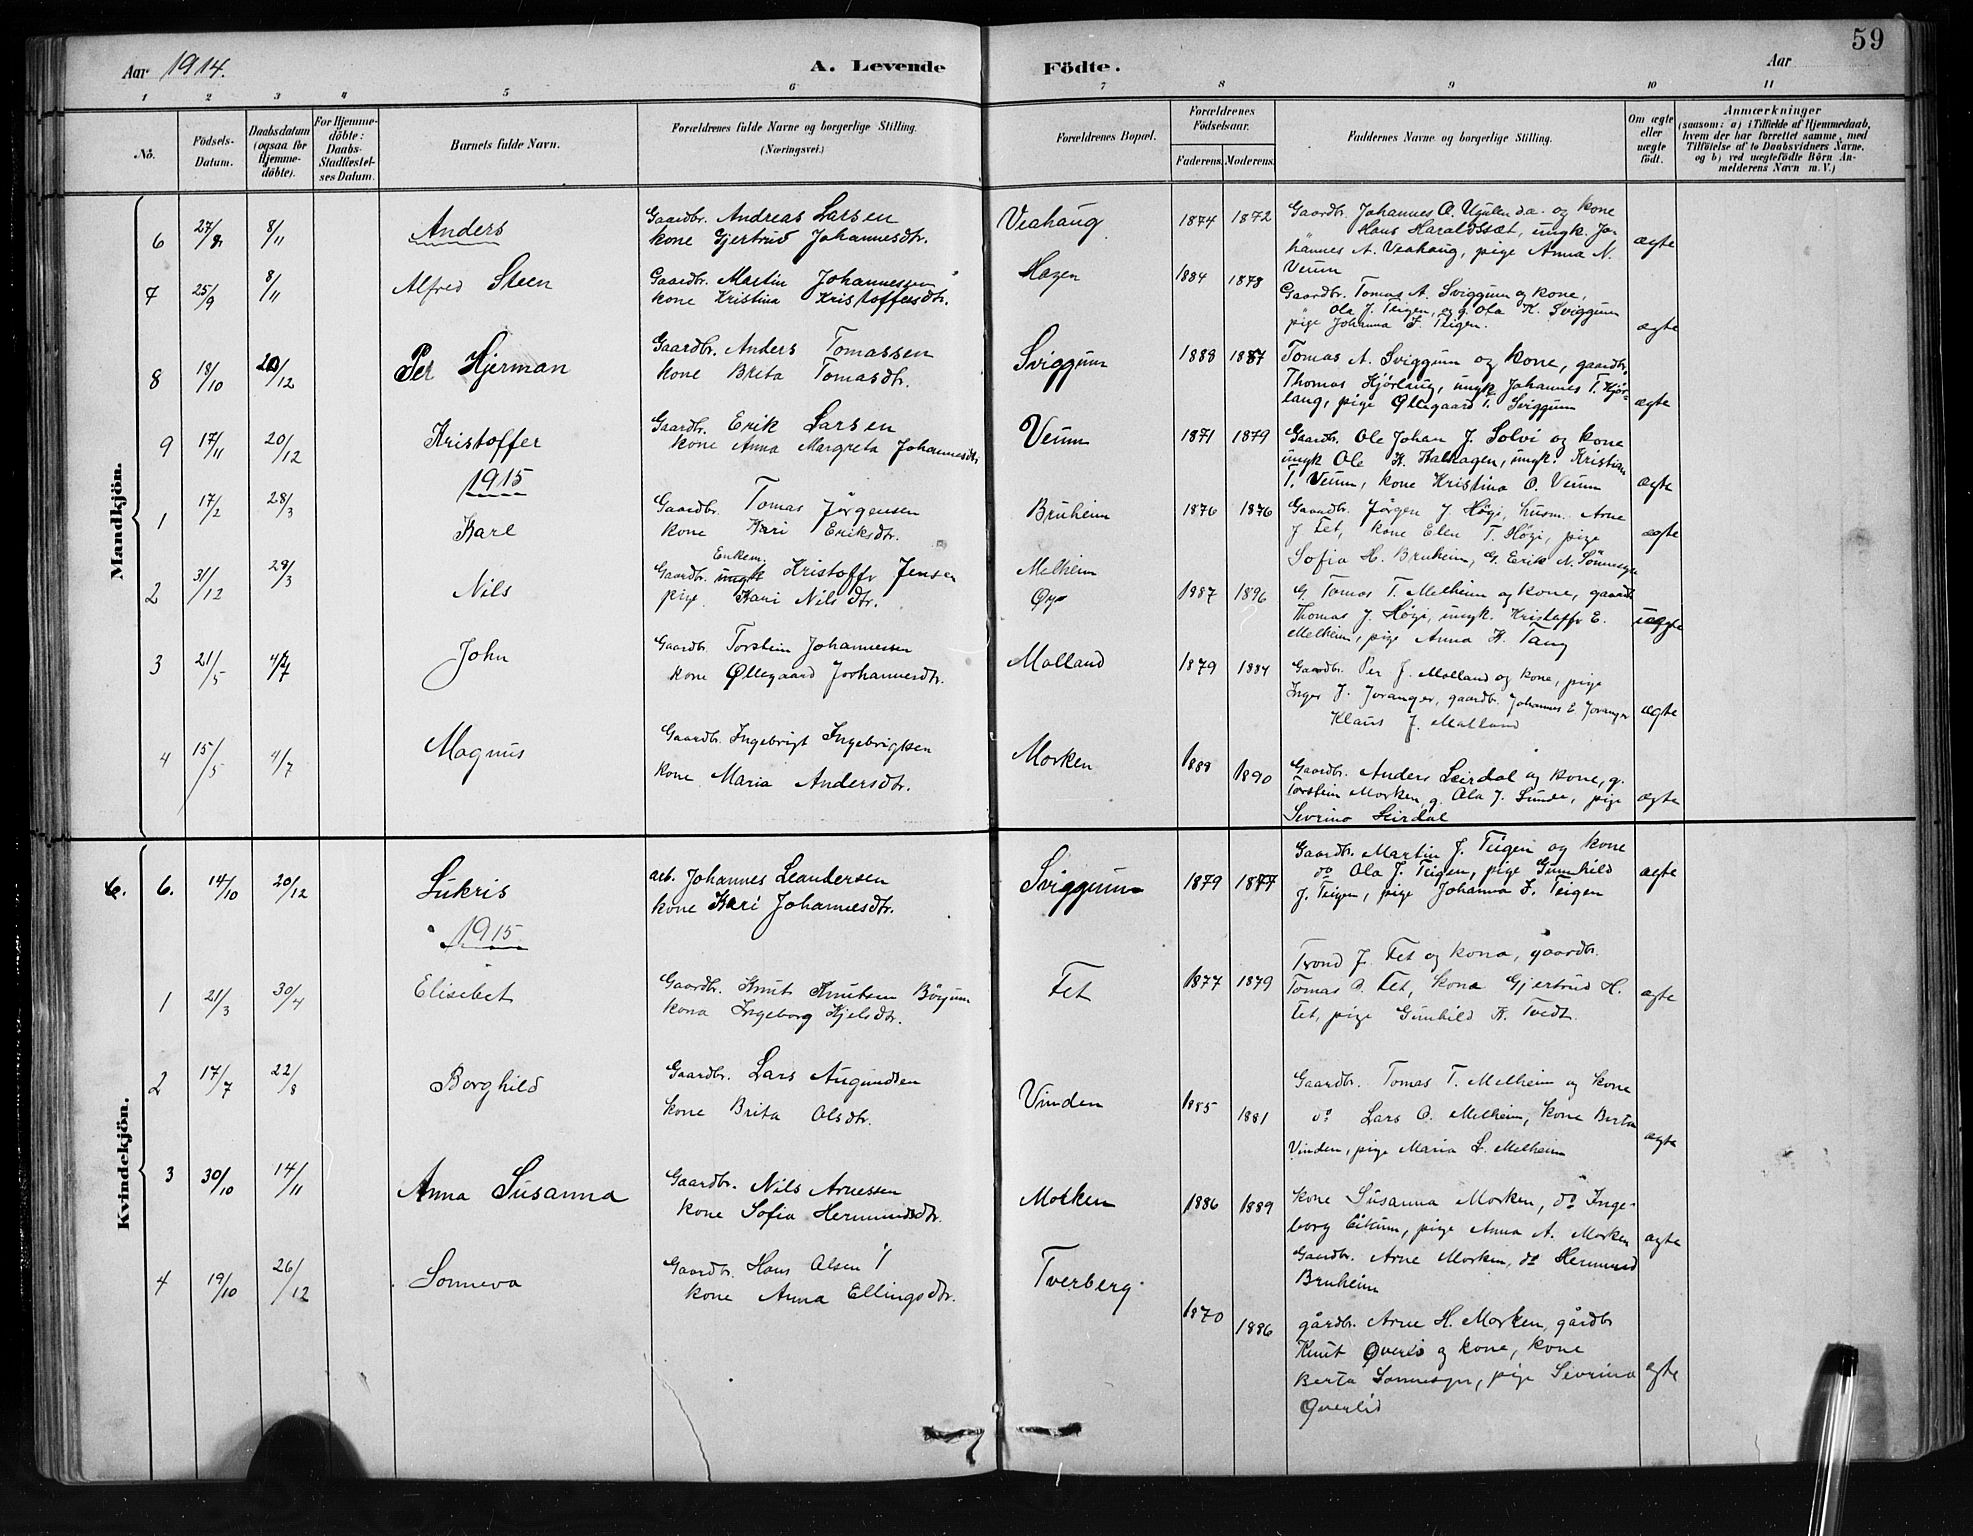 59
Aar 1914. A. Levende Födte. Aar
1 2 3 4 5 6 7 8 9 10 11
No.
Födsels-Datum.
Daabsdatum (ogsaa for Hjemme-döbte).
For Hjemme-döbte: Daabs-Stadfæstel-ses Datum.
Barnets fulde Navn.
Forældrenes fulde Navne og borgerlige Stilling.
(Næringsvei.)
Forældrenes Bopæl.
Forældrenes Födselsaar.
Faderens. Moderens.
Faddernes Navne og borgerlige Stilling.
Om ægte eller uægte födt.
Anmærkninger
(saasom: a) i Tilfælde af Hjemmedaab, hvem der har forrettet samme, med Tilföielse af to Daabsvidners Navne, og b) ved uægtefödte Börn Anmelderens Navn m. V.)
Mandkjön.
6 27/8 8/11 Anders Gaardbr. Andreas Larsen
kone Gjertrud Johannesdtr. Veahaug 1874 1872 Gaardbr. Johannes O. Ugulen d.a. og kone
Hans Haraldssæt, ungk. Jo-
hannes A. Veahaug, pige Anna N.
Veum ægte
7 25/9 8/11 Alfred Steen Gaardbr. Martin Johannessen
kone Kristina Kristoffersdtr. Hagen 1884 1878 Gaardbr. Tomas A. Sviggum og kone,
" Ola J. Teigen, og g. Ola K. Sviggum
pige Johanna J. Teigen. ægte
8 18/10 20/12 Per Hjerman Gaardbr. Anders Tomassen
kone Brita Tomasdtr. Sviggum 1888 1887 Tomas A. Sviggum og kone, gaardbr.
Thomas Kjørlaug, ungk Johannes T. Kjør-
laug, pige Øllegaard T. Sviggum ægte
9 17/11 20/12 Kristoffer Gaardbr. Erik Larsen
kone Anna Margreta Johannesdtr Veum 1871 1879 Gaardbr. Ole Johan J. Solvi og kone
ungk Ole K. Halhagen, ungk. Kristian
T. Veum, kone Kristina O. Veum ægte
1915
1 17/2 28/3 Karl Gaardbr. Tomas Jørgensen
kone Kari Eriksdtr. Bruheim 1876 1876 Gaardbr. Jørgen J. Høgi, husm. Arne
J Fet, kone Elen T. Høgi, pige
Sofia H. Bruheim, G. Erik N. Sønnesyn ægte
2 31/12 28/3 Nils Enkem.
Gaardbr. ungk Kristoffr Jensen
pige Kari Nilsdtr. Melheim
Øy 1887 1896 G. Tomas T. Melheim og kone, gaardb
Thomas J. Høgi, ungk. Kristoffr E.
Melheim, pige Anna K. Tang uægte
3 21/5 4/7 John Gaardb. Torstein Johannessen
kone Øllegaard Johannesdtr. Molland 1879 1884 Gaardbr. Per J. Molland og kone, pige
Inger J. Joranger, gaardbr. Johannes E. Joranger
Klaus J. Molland ægte
4 15/5 4/7 Magnus Gaardb. Ingebrigt Ingebrigtsen
kone Maria Andersdtr. Morken 1888 1890 Gaardbr. Anders Leirdal og kone, g.
Torstein Morken, g. Ola J. Sunde, pige
Sevrina Leirdal ægte
Kvindekjön.
6. 6. 14/10 20/12 Lukris arb. Johannes Leandersen
kone Kari Johannesdtr. Sviggum 1879 1877 Gaardbr. Martin J. Teigen og kone
do Ola J. Teigen, pige Gunhild
J. Teigen, pige Johanna J. Teigen ægte
1915
1 21/3 30/4 Elisebet Gaardbr. Knut Knutsen Börjum
kona Ingeborg Kjelsdtr. Fet 1877 1879 Trond J. Fet og kona, gaardbr.
Tomas O. Fet, kona Gjertrud H.
Fet, pige Gunhild K. Tvedt. ægte
2 17/7 22/8 Borghild Gaardbr. Lars Augundsen
kone Brita Olsdtr. Vinden 1885 1881 Gaardbr. Tomas T. Melheim og kone
do Lars O. Melheim, kone Berta
Vinden, pige Maria L. Melheim ægte
3 30/10 14/11 Anna Susanna Gaardbr. Nils Arnessen
kone Sofia Hermundsdtr. Morken 1886 1889 kone Susanna Morken, do Inge-
borg Eikum, pige Anna A. Morken
Gaardbr. Arne Morken, do Hermund
Bruheim ægte
4 19/10 26/12 Sonneva Gaardbr. Hans Olsen
kone Anna Ellingsdtr. Tverberg 1870 1886 gårdbr. Arne H. Morken, gårdbr
Knut Øverlid og kone, kone
Berta Sonnesyn, pige Sevrina
Øverlid ægte